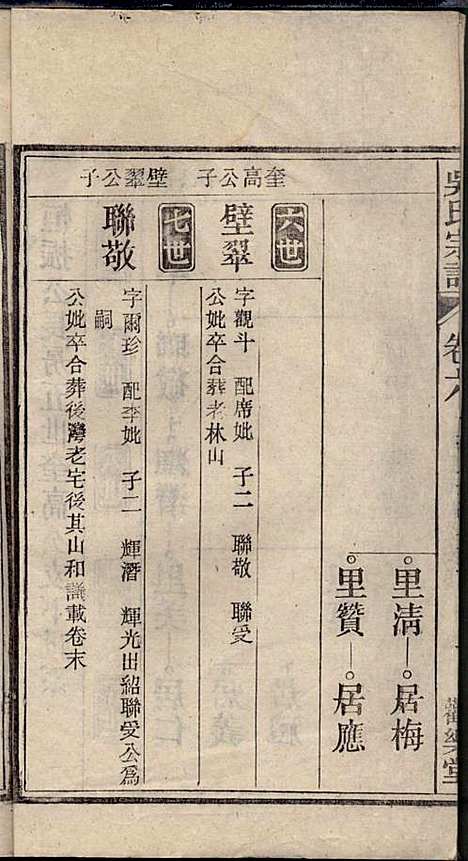 吳氏宗譜 卷六
歡樂堂
里清 居梅
里贊 居應
奎高公子
六世
壁翠
字觀斗 配席妣 子二 聯敬 聯受
公妣卒合葬老林山
壁翠公子
七世
聯敬
字爾珍 配李妣 子二 輝潛 輝光出紹聯受公爲
嗣
公妣卒合葬後灣老宅後其山和議載卷末